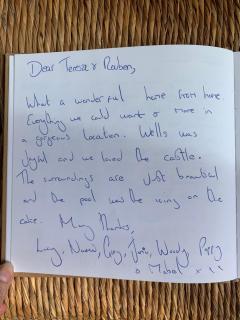 Dear Terese & Reuben,
What a wonderful home from home
Everything we could want & more in
a gorgeous location. Wells was
joyful and we loved the castle.
The surroundings are just beautiful
and the pool was the icing on the
cake. Many Thanks,
Lucy, Woody, Poppy
& Mabel x